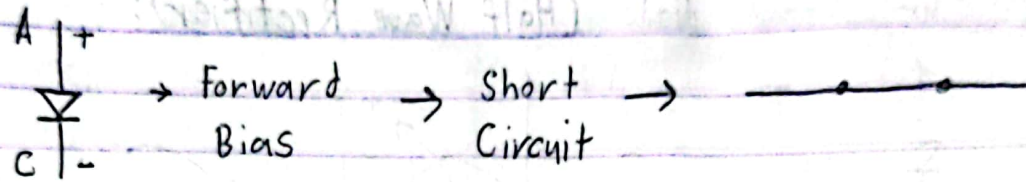 A +
→ Forward Bias → Short Circuit →
C -